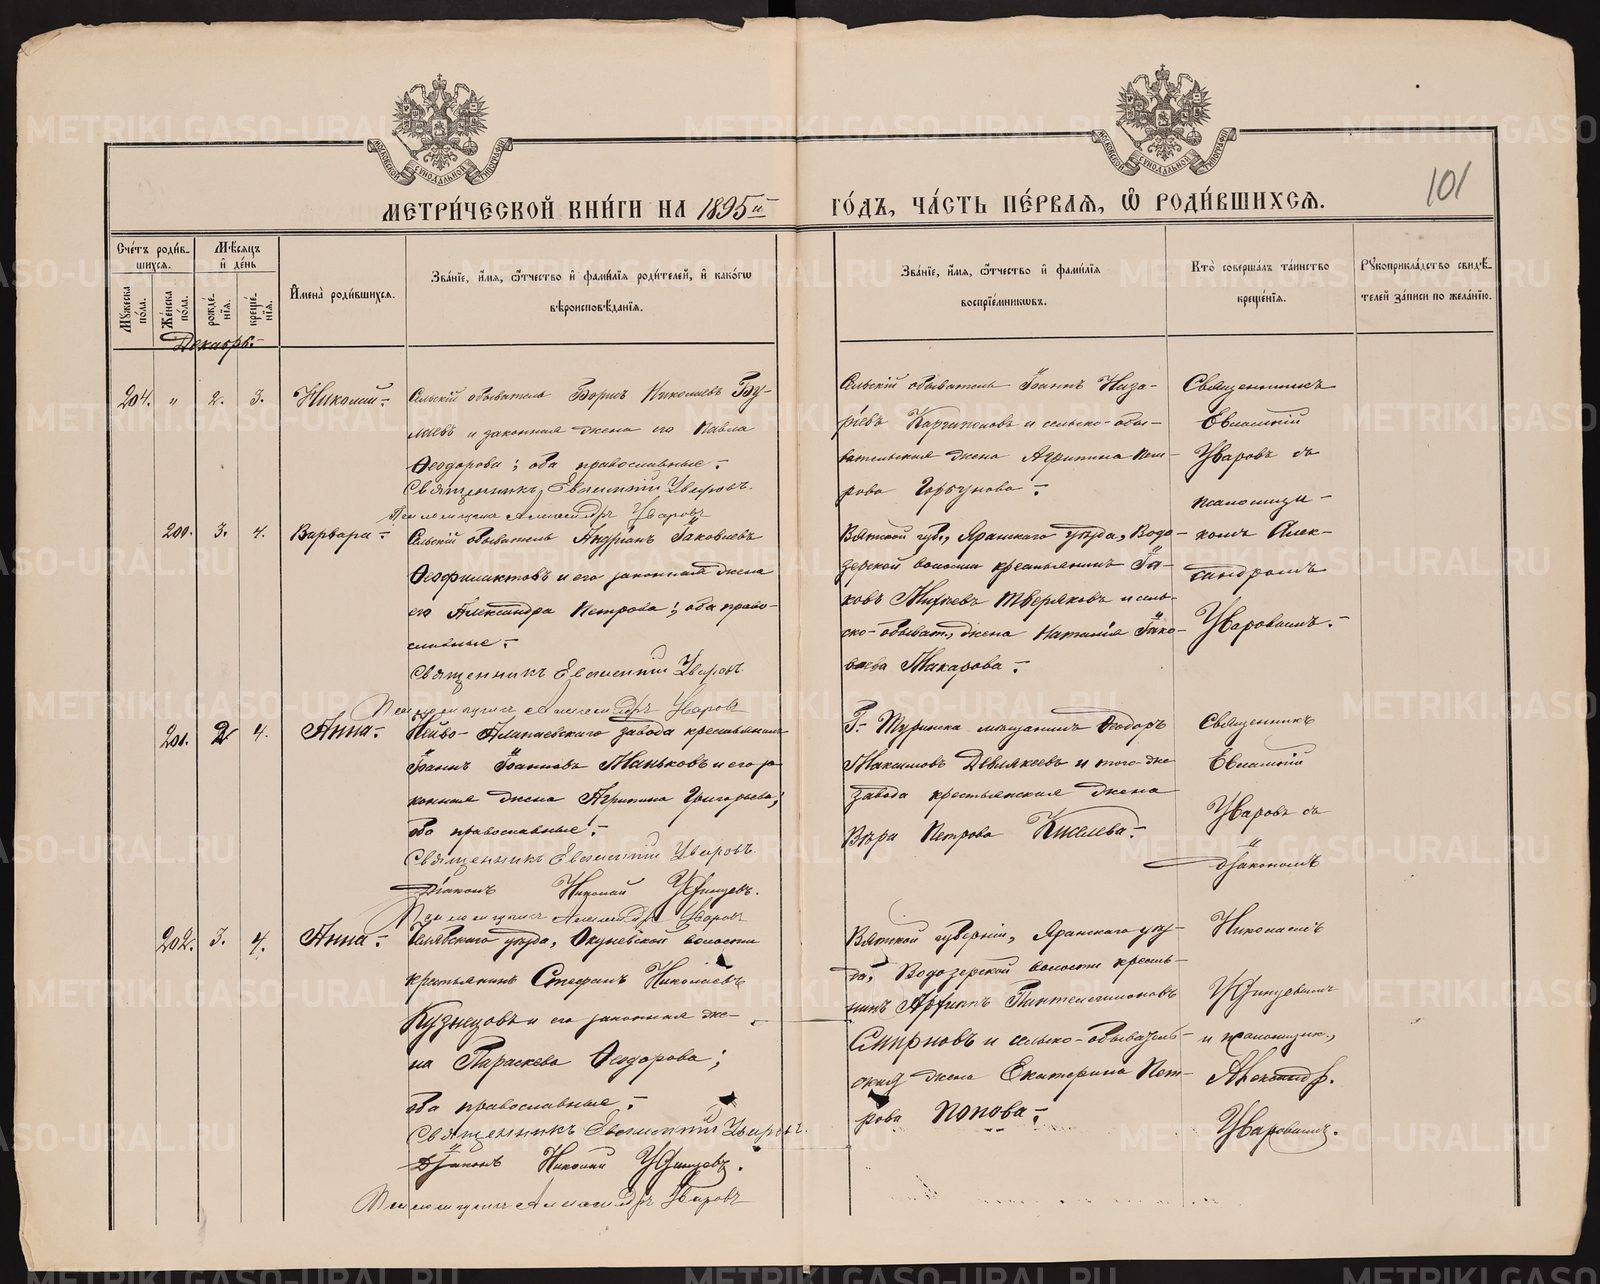 МЕТРИ́ЧЕСКОЙ КНИ́ГИ НА 1895й ГО́ДЪ, ЧА́СТЬ ПЕ́РВАЯ, Ѡ РОДИ́ВШИХСЯ.
101
Сче́тъ роди́вшихся.
Му́жеска по́ла.
Же́нска по́ла.
Мѣсяцъ и де́нь
рожде́нїя.
креще́нїя.
Имена̀ роди́вшихся.
Зва́нїе, и́мя, ѻ́тчество и фами́лїя роди́телей, и како́гѡ
вѣроисповѣ́данїя.
Зва́нїе, и́мя, ѻ́тчество и фами́лїя
воспрїе́мникѡвъ.
Кто̀ соверша́лъ та́инство
креще́нїя.
Рꙋкоприкла́дство свидѣ́-
телей за́писи по жела́нїю.
Декабрь.
204. " 2. 3. Николай.
Сельскій обыватель Борисъ Николаевъ
и законная жена его Павла
Ѳеодорова; оба православные.
Священникъ Евлампій Уваровъ.
Псаломщикъ Александръ Уваровъ
Сельскій обыватель Іоаннъ Наза-
ровъ и сельско-обы-
вательская жена Агрипина Пет-
рова Горбунова.
Священникъ
Евлампій
Уваровъ съ
псаломщи-
комъ Алек-
сандромъ
Уваровымъ.
200. 3. 4. Варвара.
Сельскій обыватель Андріанъ Іаковлевъ
Ѳеофилактовъ и его законная жена
его Александра Петрова; оба право-
славные.
Священникъ Евлампій Уваровъ
Псаломщикъ Александръ Уваровъ
Вятской губ., Яранскаго уѣзда, Водо-
зерской волости крестьянинъ Іа-
ковъ Тверяковъ и сель-
ско-обыват. жена Наталія Іако-
влева Макарова.
201. 2 4. Анна.
Нейво-Алапаевскаго завода крестьянинъ
Іоаннъ Іоанновъ Маньковъ и его за-
конная жена Агрипина Григорьева;
оба православные.
Священникъ Евлампій Уваровъ.
Діаконъ Николай Удинцевъ.
Псаломщикъ Александръ Уваровъ
Г. Туринска мѣщанинъ Ѳеодоръ
Максимовъ и того-же
завода крестьянская жена
Вѣра Петрова Киселева.
Священникъ
Евлампій
Уваровъ съ
діакономъ
Николаемъ
Удинцевымъ
и псаломщик.
Александр.
Уваровымъ.
202. 3. 4. Анна.
Челябскаго уѣзда, Окуневской волости
крестьянинъ Стефанъ Николаевъ
Кузнецовъ и его законная же-
на Параскева Ѳеодорова;
оба православные.
Священникъ Евлампій Уваровъ.
Діаконъ Николай Удинцевъ.
Псаломщикъ Александръ Уваровъ
Вятской губерніи, Яранскаго уѣз-
да, Водозерской волости кресть-
нинъ Архипъ Пантелеимоновъ
Смирновъ и сельско-обыватель-
ская жена Екатерина Пет-
рова Попова.
METRIKI.GASO-URAL.RU